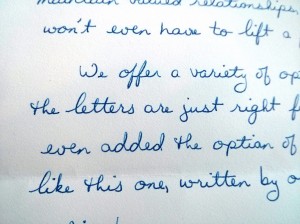 maintain valued relationships
won't even have to lift a
We offer a variety of op
the letters are just right f
even added the option of
like this one, written by o